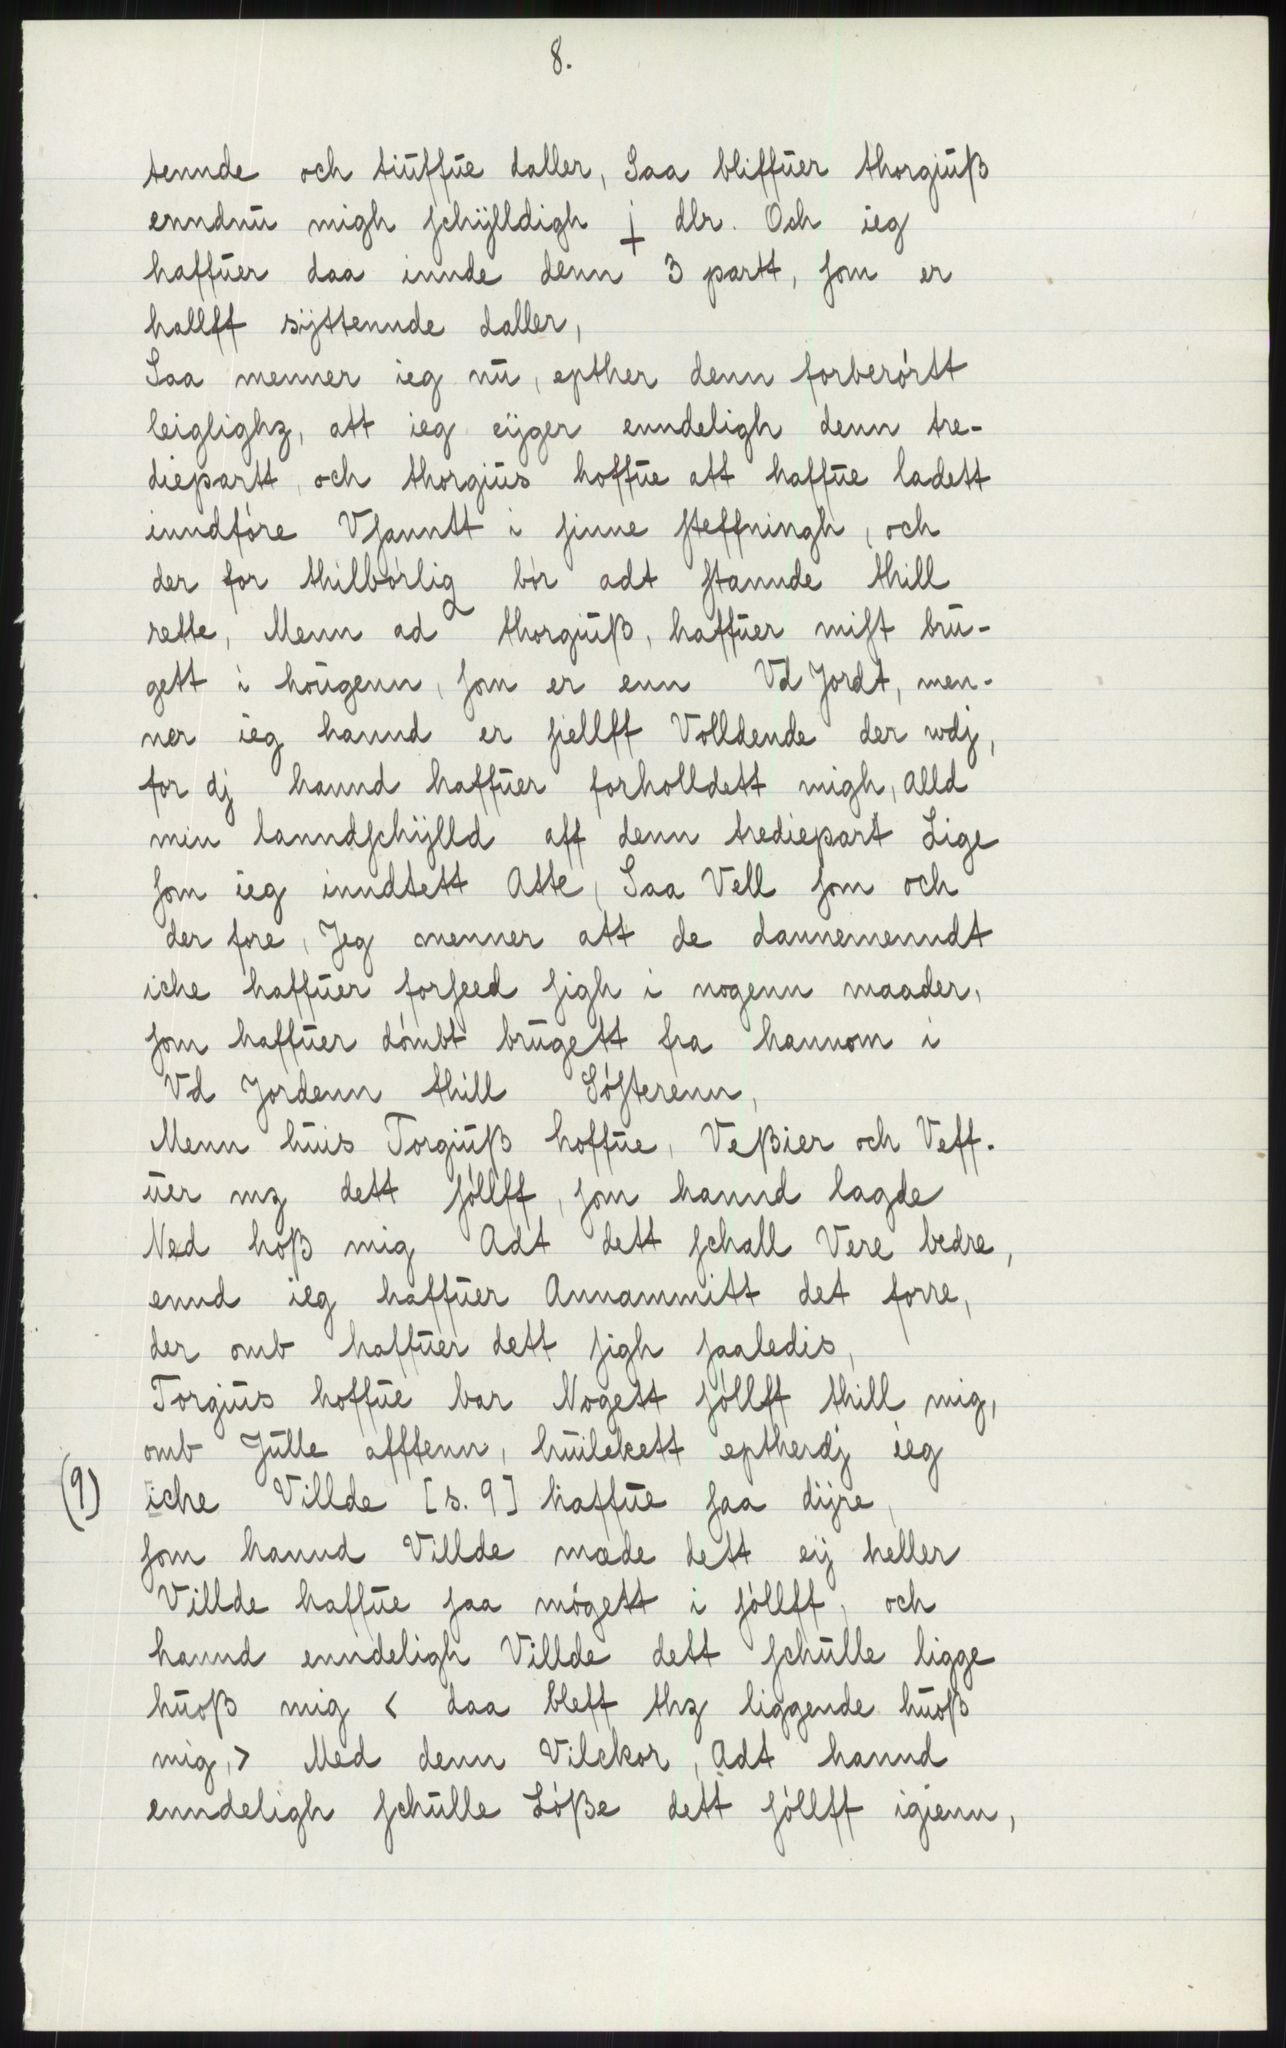 8.
tennde och tiuffue daller, Saa bliffuer thorgiuß
enndnu migh schÿlldigh j dlr. Och ieg
haffuer daa innde denn 3 partt, som er
hallff sÿttennde daller,
Saa menner ieg nu, epther denn forberórtt
leiglighz, att ieg eÿger enndeligh denn tre-
diepartt, och thorgius hoffue att haffue ladett
inndfóre Vsanntt i sinne steffningh, och
der for thilbórlig bór adt stannde thill
rette, Menn ad thorgiuß, haffuer mist bru-
gett i hougenn, som er enn Vd Jordt, men-
ner ieg hannd er siellff Volldende der wdj,
for dj hannd haffuer forholldett migh, alld
min lanndschÿlld aff denn trediepart Lige
som ieg inndtett Atte, Saa Vell som och
der fore, Jeg menner att de dannemenndt
iche haffuer forseed sigh i nogenn maader,
som haffuer dómbt brugett fra hannom i
Vd Jordenn thill Sósterenn,
Menn huis Torgiuß hoffue, Veßier och Veff-
uer mz dett sóllff, som hannd lagde
Ned hoß mig Adt dett schall Vere bedre,
ennd ieg haffuer Annammitt det forre,
der omb haffuer dett sigh saaledis,
Torgius hoffue bar Nogett sóllff thill mig,
omb Julle afftenn, huilckett eptherdj ieg
(9) iche Villde [s. 9] haffue saa dÿre,
som hannd Villde mæde dett eÿ heller
Villde haffue saa mógett i sóllff, och
hannd enndeligh Villde dett schulle ligge
huoß mig < daa bleff thz liggende huoß
mig, > Med denn Vilckor, Adt hannd
enndeligh schulle Lóße dett sóllff igienn,